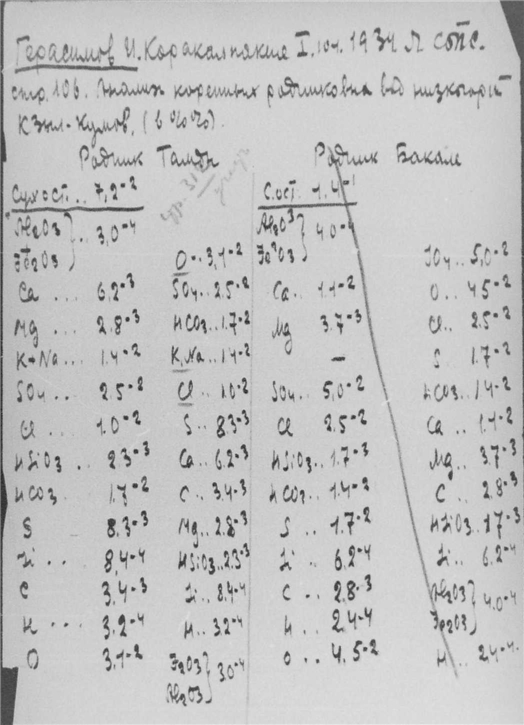 Герасимов И. Каракалпакия I. 1934 Л СОПС.
стр. 106. Анализ коренных родниковых вод низкогорий
Кзыл-Кумов, (в %%).
Родник Тамды Родник Бакале
Сух. ост. .. 7,2⁻² С. ост. 1.4⁻¹
Al2O3 Fe2O3 } .. 3,0⁻⁴ Al2O3 Fe2O3 } 4.0⁻⁴
O .. 3,1⁻² SO4 .. 5,0⁻²
Ca ... 6,2⁻³ SO4 .. 2.5⁻² Ca .. 1.1⁻² O .. 4.5⁻²
Mg ... 2.8⁻³ HCO3 .. 1.7⁻² Mg 3.7⁻³ Cl .. 2.5⁻²
K+Na .. 1.4⁻² K,Na .. 1.4⁻² — S .. 1.7⁻²
SO4 .. 2.5⁻² Cl .. 1.0⁻² SO4 .. 5,0⁻² HCO3 .. 1.4⁻²
Cl ... 1.0⁻² S .. 8.3⁻³ Cl 2.5⁻² Ca .. 1.1⁻²
HSiO3 .. 2.3⁻³ Ca .. 6.2⁻³ HSiO3 .. 1.7⁻³ Mg .. 3.7⁻³
HCO3 1.7⁻² C .. 3.4⁻³ HCO3 .. 1.4⁻² C .. 2.8⁻³
S 8.3⁻³ Mg .. 2.8⁻³ S .. 1.7⁻² HSiO3 .. 1.7⁻³
Si ... 8,4⁻⁴ HSiO3 .. 2.3⁻³ Si .. 6,2⁻⁴ Si .. 6.2⁻⁴
C 3,4⁻³ Si .. 8.4⁻⁴ C .. 2.8⁻³ Al2O3 Fe2O3 } 4.0⁻⁴
H ... 3,2⁻⁴ H .. 3.2⁻⁴ H .. 2.4⁻⁴
O 3,1⁻² Fe2O3 Al2O3 } 3.0⁻⁴ O .. 4.5⁻² H .. 2.4⁻⁴